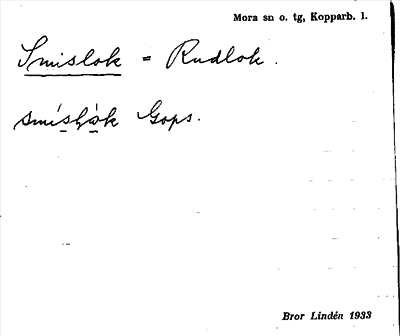 Mora sn o. tg, Kopparb. l.
Smislok = Rudlok.
Gops.
Bror Lindén 1933